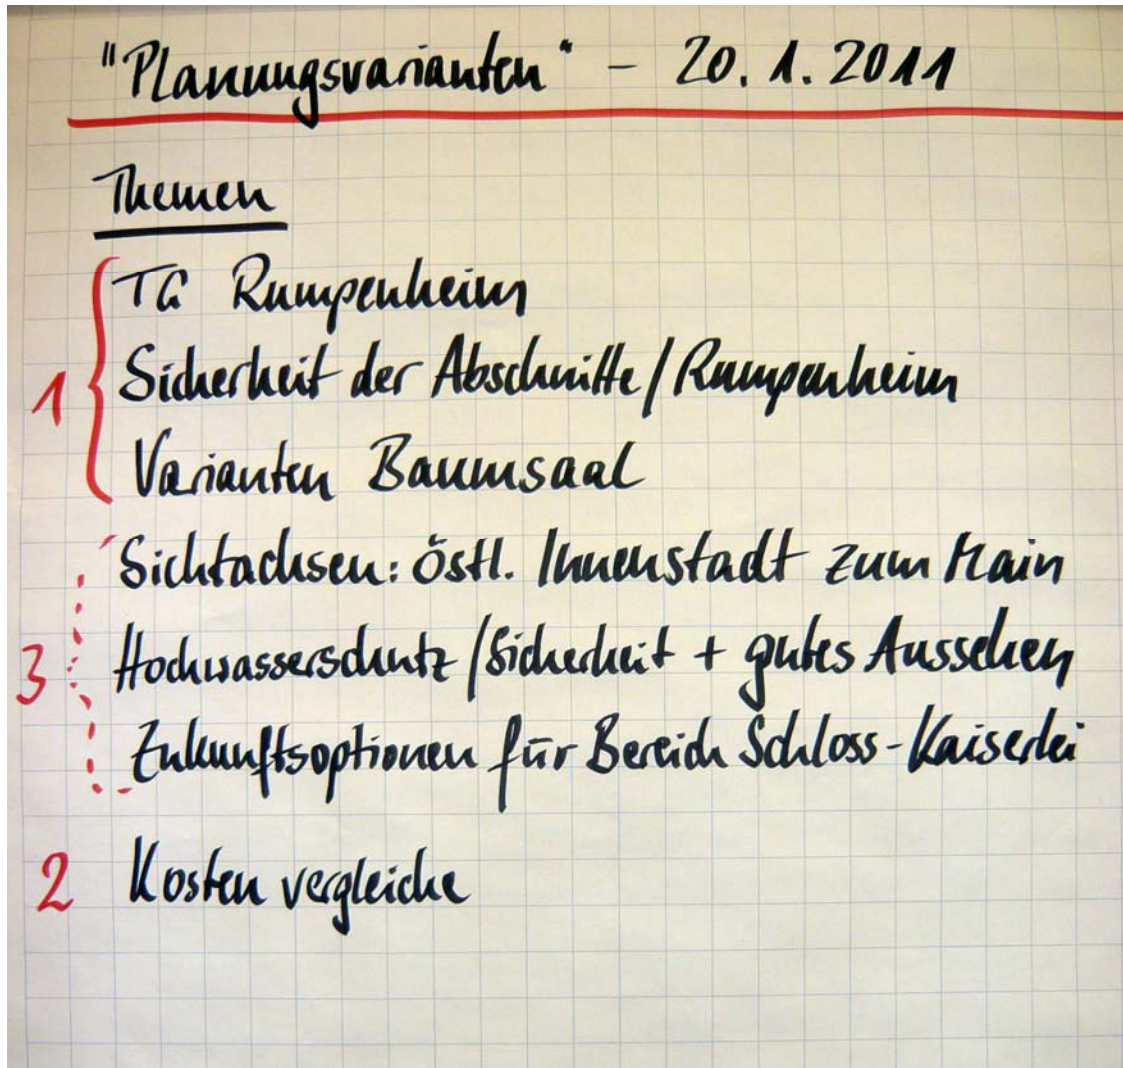 "Planungsvarianten" - 20.1.2011
Themen
TG Rumpenheim
1 Sicherheit der Abschnitte/Rumpenheim
Varianten Baumsaal
Sichtachsen: östl. Innenstadt zum Main
3 Hochwasserschutz/Sicherheit + gutes Aussehen
Zukunftsoptionen für Bereich Schloss-Kaiserlei
2 Kostenvergleiche